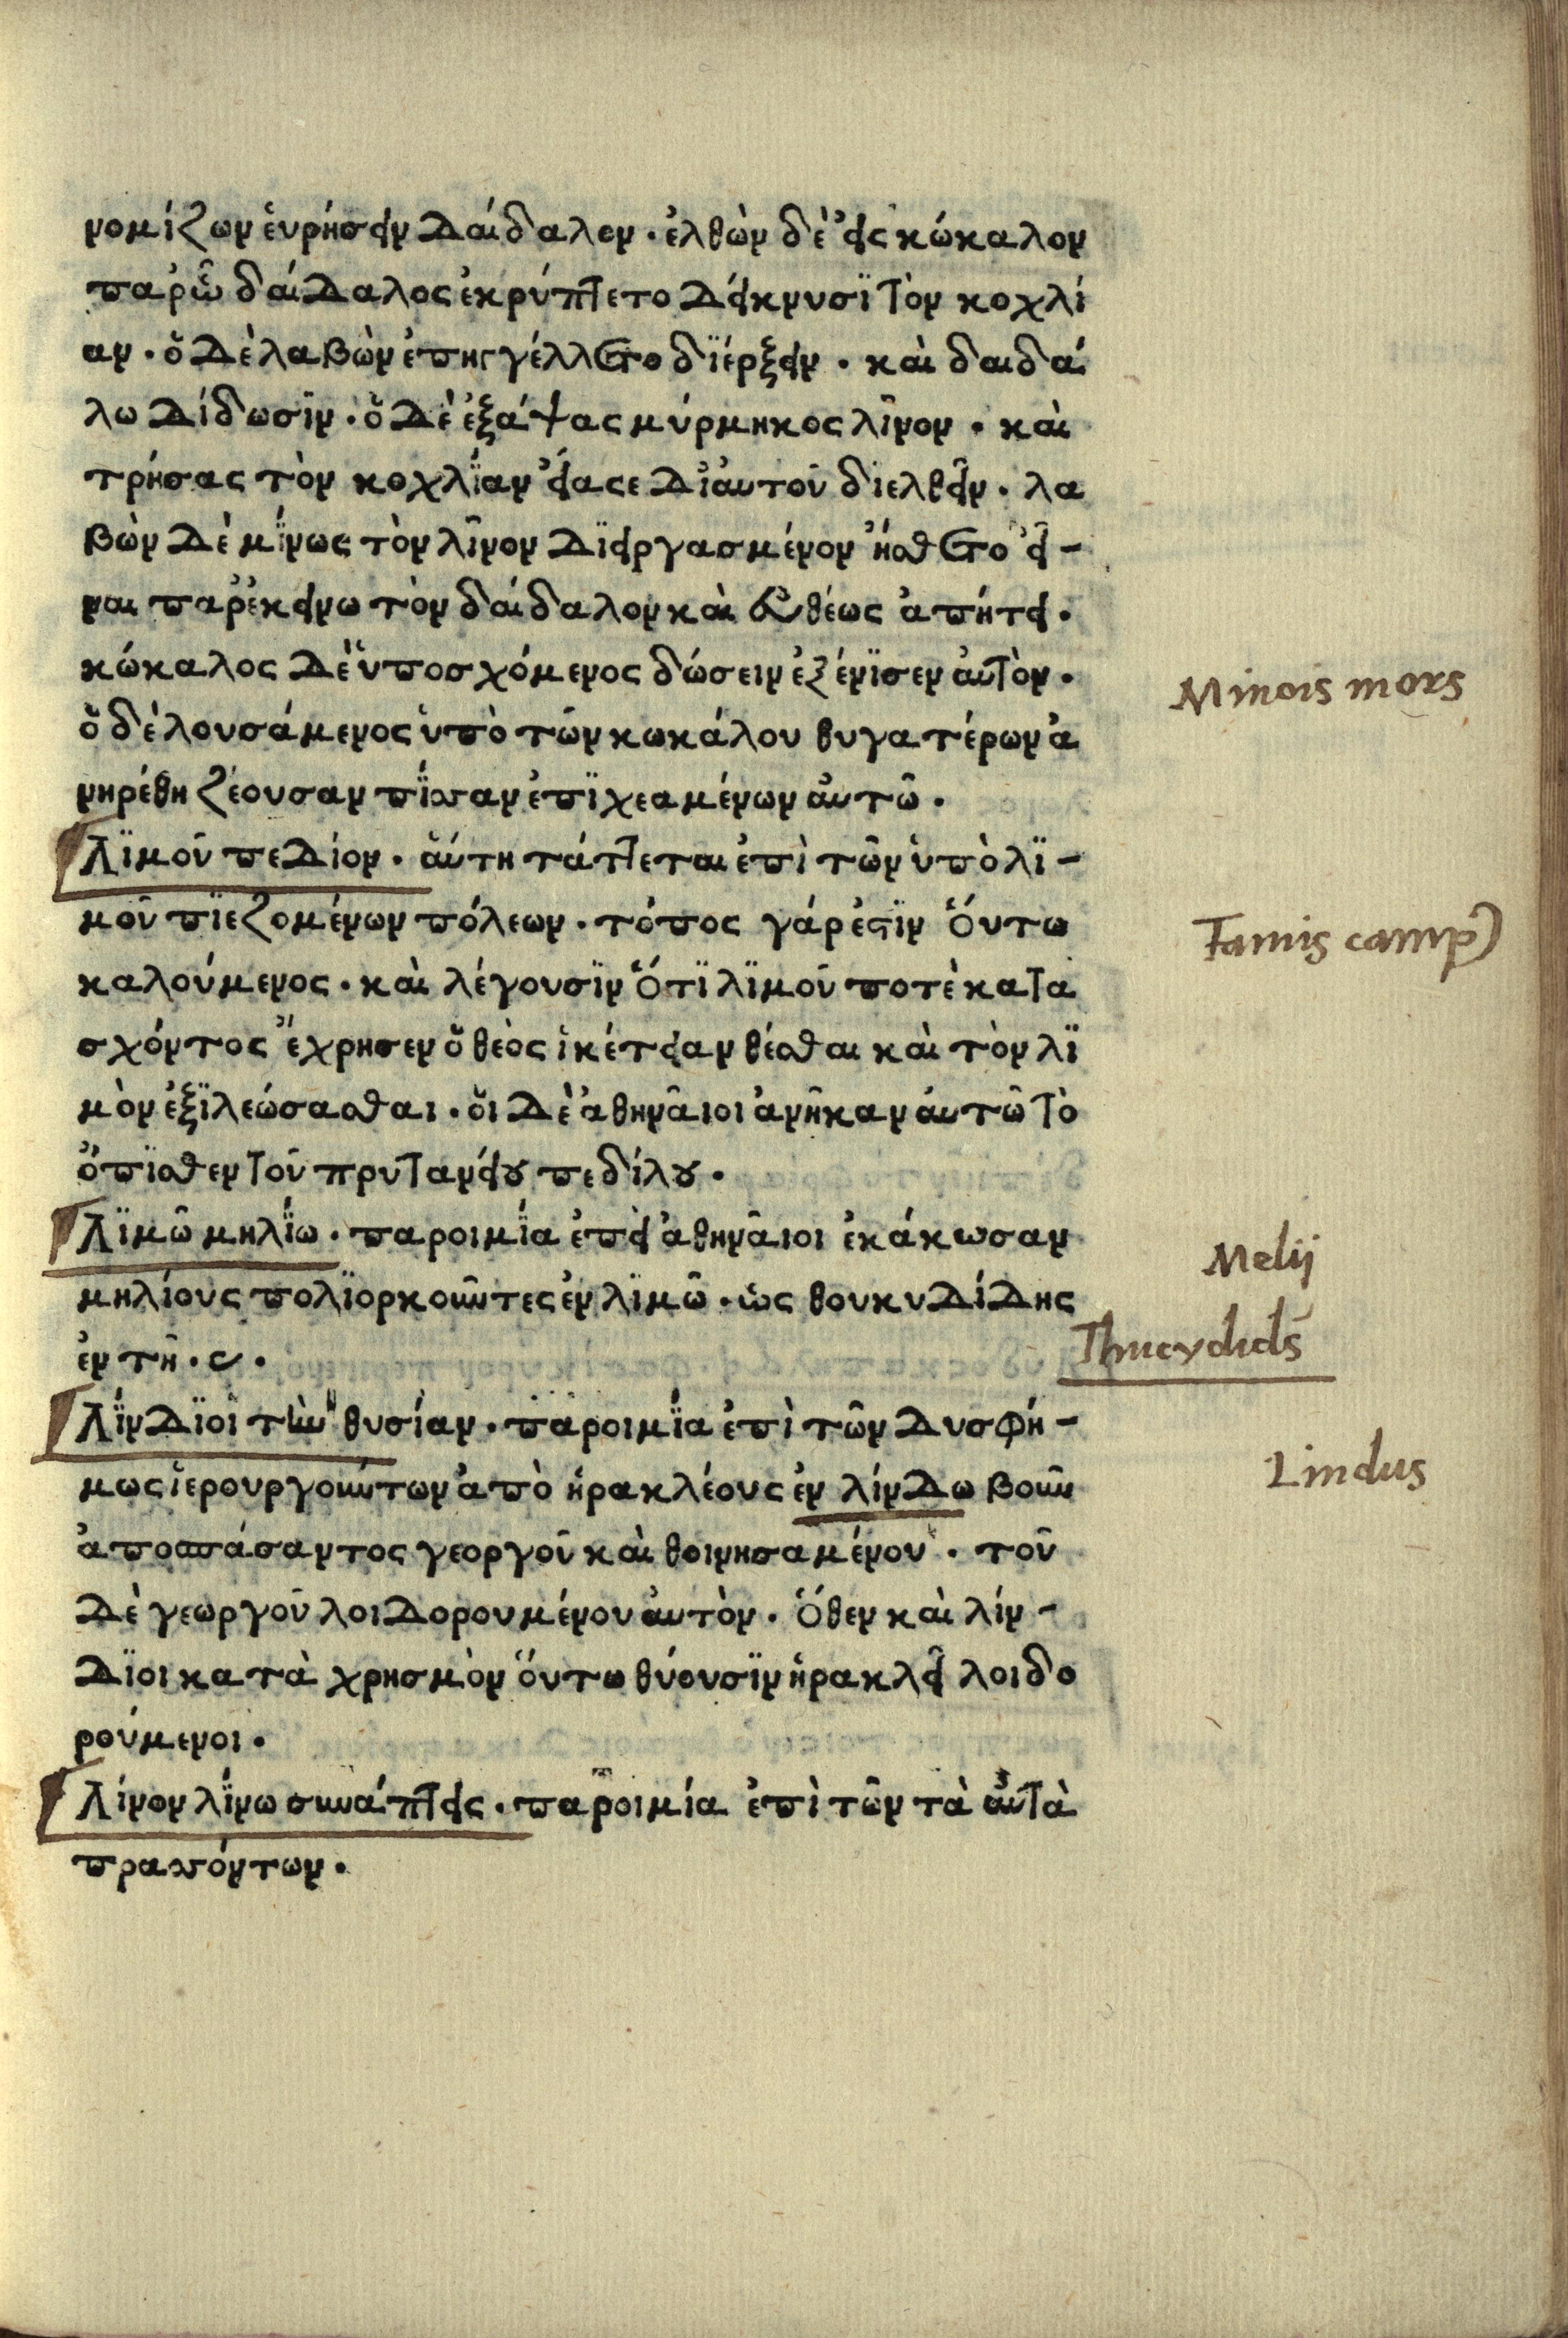 νομίζων ἑυρήσειν Δάιδαλον . ἐλθὼν δὲ εἰς κώκαλον
παρ ᾧ δάιΔαλος ἐκρύπτετο Δείκνυσϊ τὸν κοχλί
αν . ὅ Δὲ λαβὼν ἐπηγγέλλετο δϊέρξειν . κὰι δαιδά
λω Δίδωσϊν . ὅ Δὲ ἐξάψας μύρμηκος λῖνον . κὰι
τρήσας τὸν κοχλΐαν εἴασε Δἰ ἀυτοῦ διελθεῖν . λα
βὼν Δὲ μΐνως τὸν λῖνον Δϊειργασμένον ἤσθετο εἶ-
ναι παρ ἐκείνω τὸν δάιδαλον κὰι ἐυθέως ἀπήτει .
κώκαλος Δὲ ὑποσχόμενος δώσειν ἐξένϊσεν ἀυτὸν .
ὅ δὲ λουσάμενος ὑπὸ τῶν κωκάλου θυγατέρων ἀ
νηρέθη ζέουσαν πΐσσαν ἐπϊχεαμένων ἀυτῶ .
Minois mors
Λϊμοῦ πεΔίον . ἅυτη τάττεται ἐπὶ τῶν ὑπὸ λϊ-
μοῦ πϊεζομένων πόλεων . τόπος γάρ ἐστϊν ὅυτω
Famis camp⁹
καλούμενος . κὰι λέγουσϊν ὅτϊ λϊμοῦ ποτὲ κατα
σχόντος ἔχρησεν ὅ θεὸς ἱκέτειαν θέσθαι κὰι τὸν λϊ
μὸν ἐξϊλεώσασθαι . ὅι Δὲ ἀθηνᾶιοι ἀνῆκαν ἀυτῶ τὸ
ὄπϊσθεν τοῦ πρυτανείȣ πεδίλȣ .
Λϊμῶ μηλΐω . παροιμΐα ἐπεὶ ἀθηνᾶιοι ἐκάκωσαν
Melij
μηλίους πολϊορκοῦντες ἐν λϊμῶ . ὡς θουκυΔίΔης
Thucydides
ἐν τῆ . ϛ .
ΛΐνΔϊοϊ τὴν θυσίαν . παροιμΐα ἐπὶ τῶν Δυσφή-
Lindus
μως ἱερουργούντων ἀπὸ ἡρακλέους ἐν λίνΔω βοῦν
ἀποσπάσαντος γεοργοῦ κὰι θοινησαμένου . τοῦ
Δὲ γεωργοῦ λοιΔορουμένου ἀυτὸν . ὅθεν κὰι λίν-
Δϊοι κατὰ χρησμὸν ὅυτω θύουσϊν ἡρακλεῖ λοιδο
ρούμενοι .
Λίνον λΐνω συνάπτεις . παροιμία ἐπὶ τῶν τὰ ἀυτὰ
πρασσόντων .